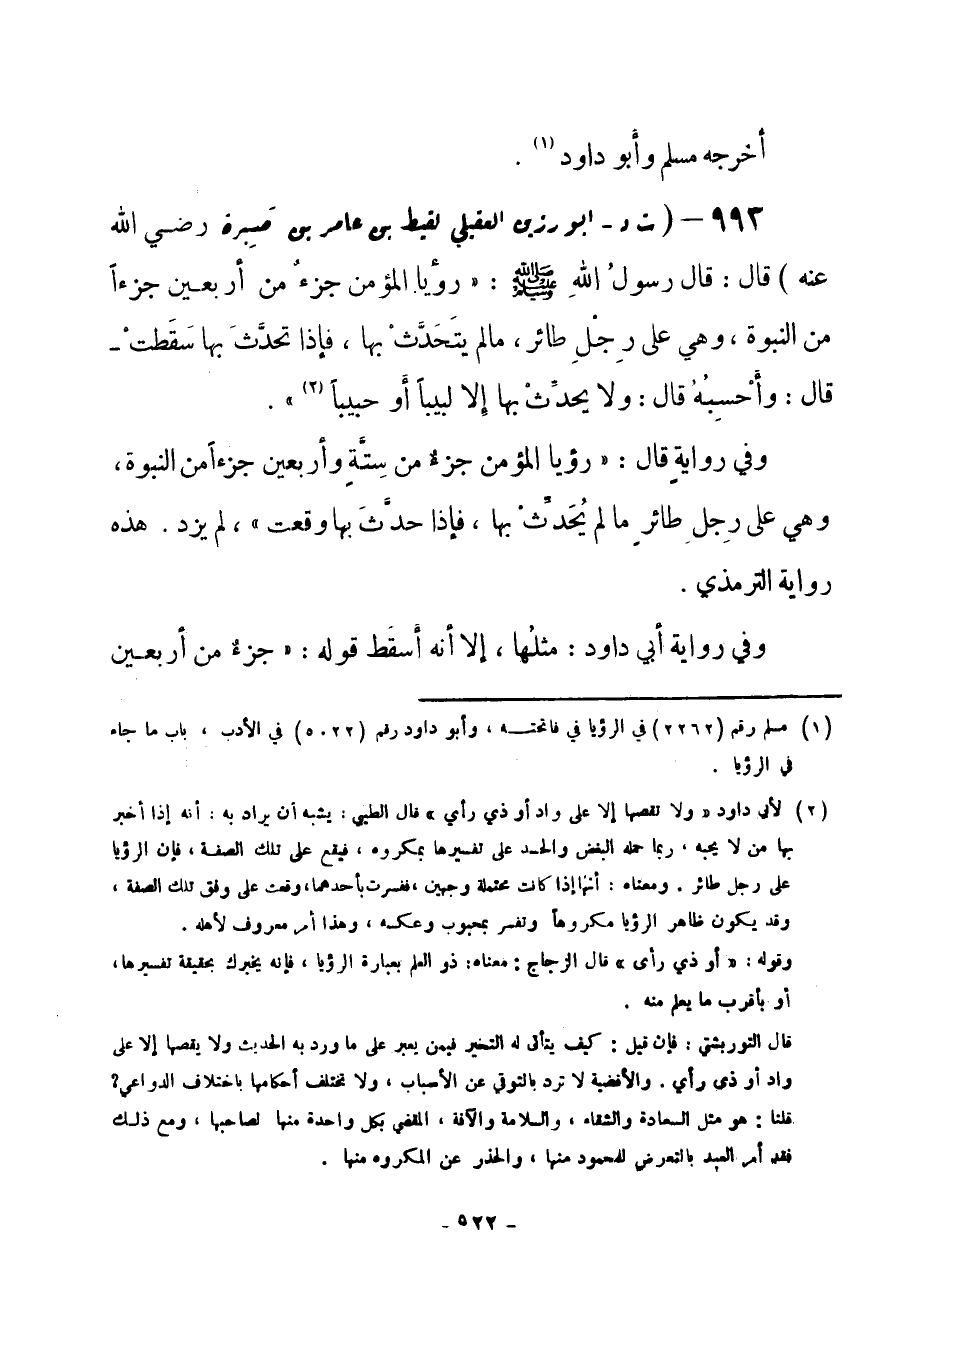 أخرجه مسلم وأبو داود (١) .
٩٩٣ – ( ت د - ابو رزين العقيلي لقيط بن عامر بن صَبِرة رضي الله
عنه ) قال : قال رسولُ اللهِ ﷺ : « رؤيا المؤمن جزءٌ من أربعين جزءاً
من النبوة ، وهي على رِجْلِ طائر ، مالم يتَحَدَّثْ بها ، فإذا تحدَّثَ بها سَقَطتْ -
قال : وأَحْسِبُهُ قال : ولا يحدِّثْ بها إلا لبيباً أو حبيباً (٢) » .
وفي روايةٍ قال : « رؤيا المؤمن جزءٌ من سِتَّةٍ وأربعين جزءاً من النبوة ،
وهي على رِجلِ طائرٍ ما لم يُحَدِّثْ بها ، فإذا حدَّثَ بها وقعت » ، لم يزد . هذه
رواية الترمذي .
وفي رواية أبي داود : مثلُها ، إلا أنه أسقَط قوله : « جزءٌ من أربعين
(١) مسلم رقم (٢٢٦٢) في الرؤيا في فاتحته ، وأبو داود رقم (٥٠٢٢) في الأدب ، باب ما جاء
في الرؤيا .
(٢) لأبي داود « ولا تقصها إلا على واد أو ذي رأي » قال الطيبي : يشبه أن يراد به : أنه إذا أخبر
بها من لا يحبه ، ربما حمله البغض والحسد على تفسيرها بمكروه ، فيقع على تلك الصفة ، فإن الرؤيا
على رجل طائر . ومعناه : أنها إذا كانت محتملة وجهين ، ففسرت بأحدهما ، وقعت على وفق تلك الصفة ،
وقد يكون ظاهر الرؤيا مكروهاً وتفسر بمحبوب وعكسه ، وهذا أمر معروف لأهله .
وقوله : « أو ذي رأى » قال الزجاج : معناه : ذو العلم بعبارة الرؤيا ، فإنه يخبرك بحقيقة تفسيرها ،
أو بأقرب ما يعلم منه .
قال التوربشتي : فإن قيل : كيف يتأتى له التخير فيمن يعبر على ما ورد به الحديث ولا يقصها إلا على
واد أو ذي رأي . والأقضية لا ترد بالتوقي عن الأسباب ، ولا تختلف أحكامها باختلاف الدواعي ؟
قلنا : هو مثل السعادة والشقاء ، والسلامة والآفة ، المقضي بكل واحدة منها لصاحبها ، ومع ذلك
فقد أمر العبد بالتعرض للمحمود منها ، والحذر عن المكروه منها .
- ٥٢٢ -